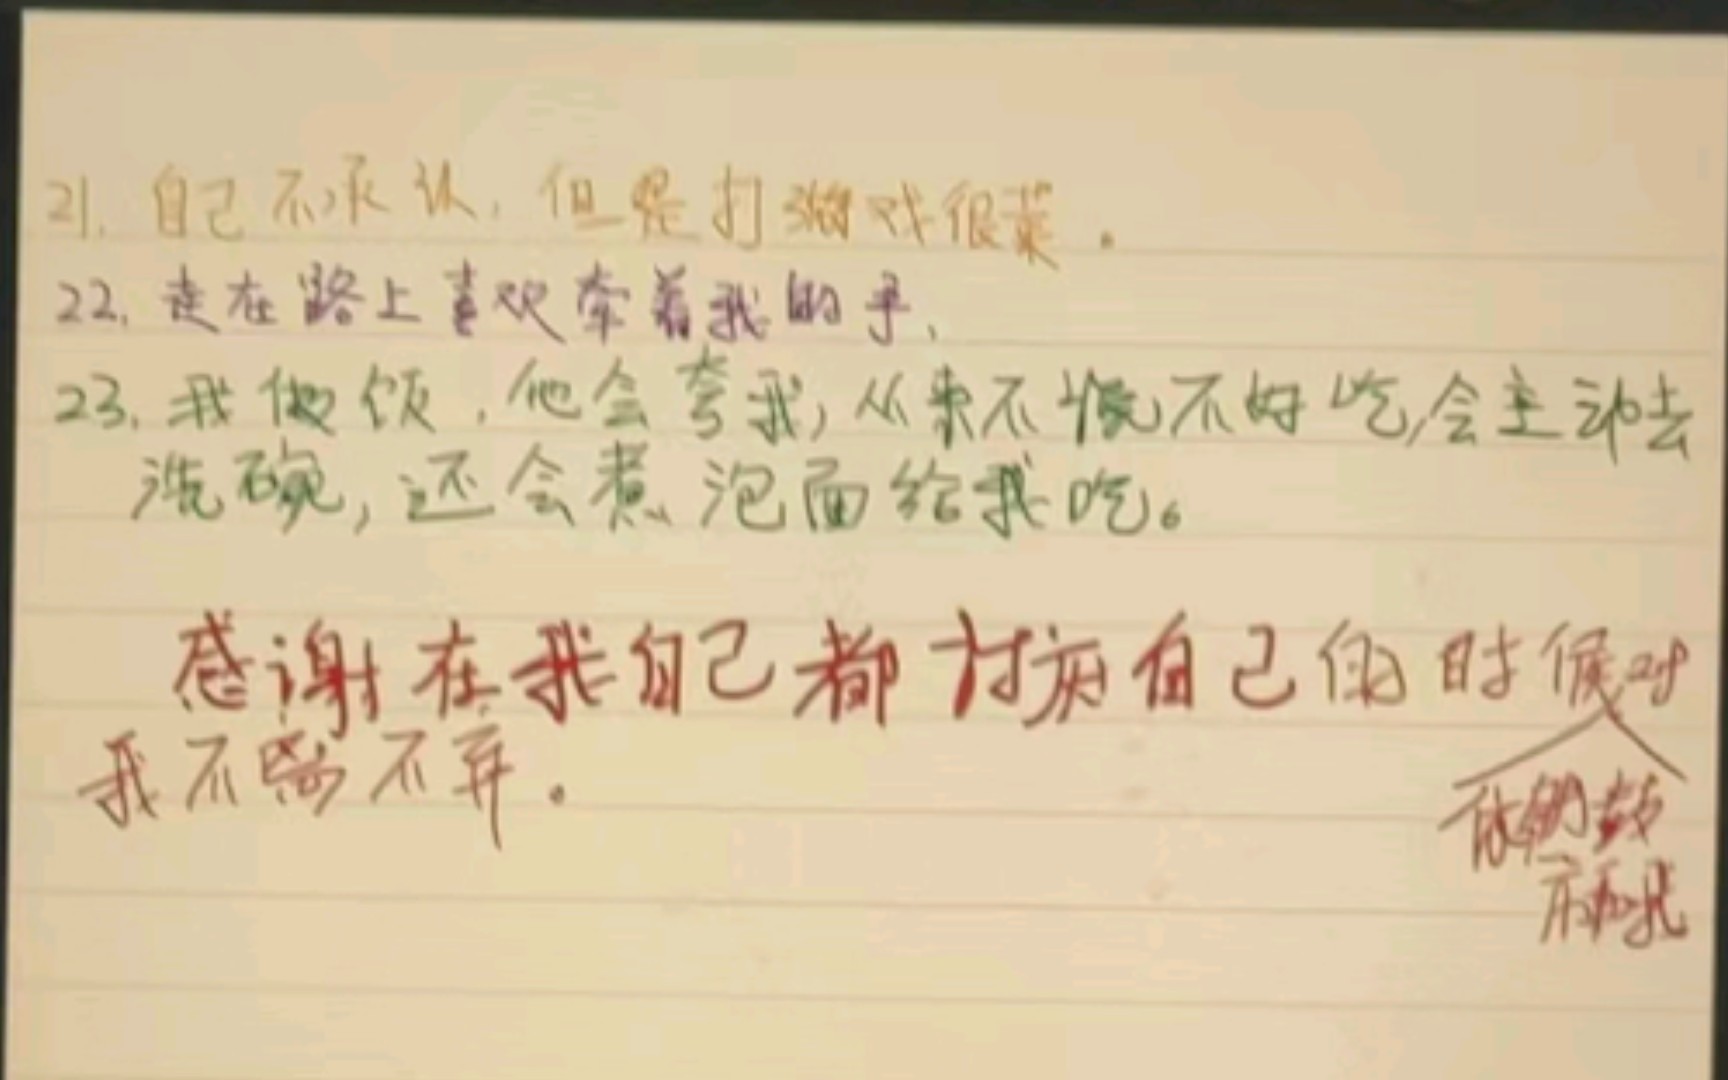 21. 自己不承认,但是打游戏很菜。
22. 走在路上喜欢牵着我的手、
23. 我做饭,他会夸我,从来不嫌不好吃,会主动去
洗碗,还会煮泡面给我吃。
感谢在我自己都讨厌自己的时候对
我不离不弃。
依然鼓
励我